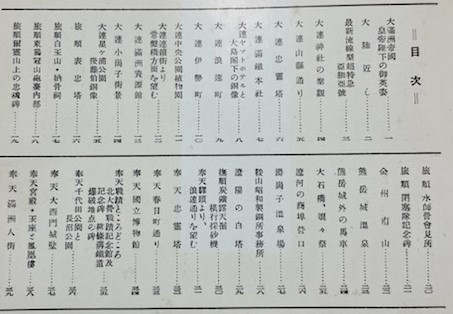 目次
大滿洲帝國
皇帝陛下の御英姿……一
大陸近し……二
最新流線型超特急
亞細亞號……三
大連神社の景觀……四
大連山縣通り……五
大連忠靈塔……六
大連滿鐵本社……七
大連ヤマトホテルと
大島閣下の銅像……八
大連浪速町……九
大連伊勢町……一〇
大連中央公園植物園……一一
大連連鎖街より
常盤橋方面を望む……一二
大連滿洲資源館……一三
大連小崗子街景……一四
大連星ヶ浦公園
後藤伯銅像……一五
旅順表忠塔……一六
旅順白玉山・納骨祠……一七
旅順東鷄冠山砲臺内部……一八
旅順爾靈山上の忠魂碑……一九
旅順水師營會見所……二〇
旅順閉塞隊記念碑……二一
金州南山……二二
熊岳城溫泉……二三
熊岳城外の馬車……二四
大石橋、娘々祭……二五
遼河の商埠營口……二六
湯崗子溫泉場……二七
鞍山昭和製鋼所事務所……二八
遼陽の白塔……二九
撫順炭鑛露天掘
橫行採砂機……三〇
奉天驛頭より、
浪速通りを望む……三一
奉天忠靈塔……三二
奉天春日町通り……三三
奉天國立博物館……三四
奉天戰蹟ところどころ
北大營戰蹟記念館及
記念碑、柳條溝鐵道
爆破地点の碑……三五
奉天千代田公園と
長沼公園……三六
奉天大西門城壁……三七
奉天宮殿・玉座と鳳凰樓……三八
奉天滿洲人街……三九